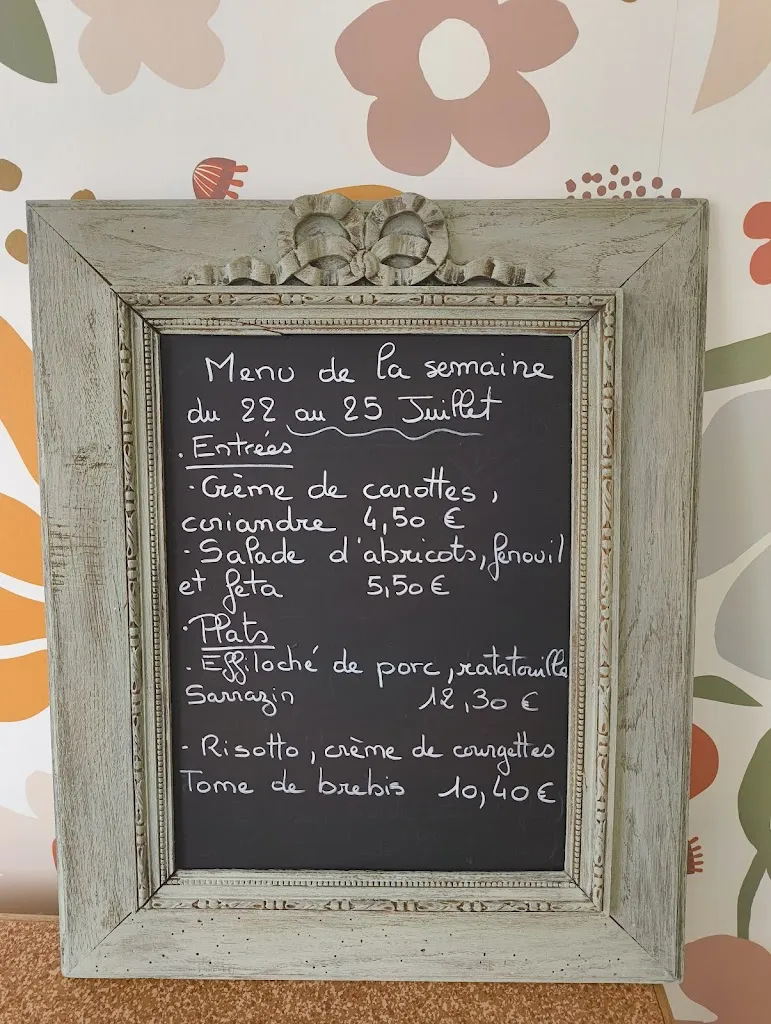 Menu de la semaine
du 22 au 25 Juillet
. Entrées
· Crème de carottes,
coriandre 4,50 €
· Salade d'abricots, fenouil
et feta 5,50 €
· Plats
. Effiloché de porc, ratatouille
Sarrazin 12,30 €
- Risotto, crème de courgettes
Tome de brebis 10,40 €